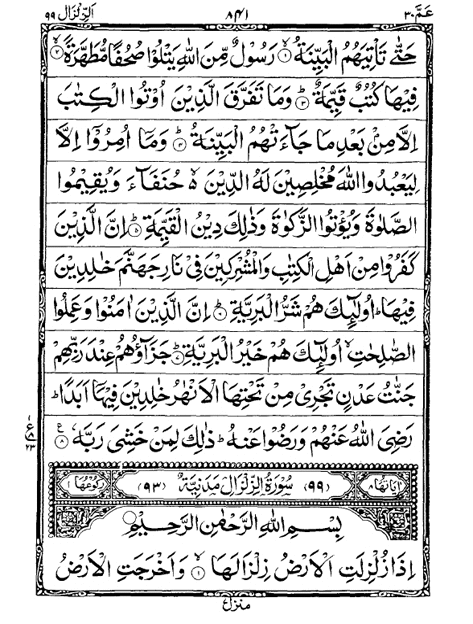 عَمَّ ٣٠ ٨٤١ الزلزال ٩٩
حَتّٰى تَاْتِيَهُمُ الْبَيِّنَةُ ۙ﴿۱﴾ رَسُوْلٌ مِّنَ اللّٰهِ يَتْلُوْا صُحُفًا مُّطَهَّرَةً ۙ﴿۲﴾
فِيْهَا كُتُبٌ قَيِّمَةٌ ؕ﴿۳﴾ وَمَا تَفَرَّقَ الَّذِيْنَ اُوْتُوا الْكِتٰبَ
اِلَّا مِنْۢ بَعْدِ مَا جَآءَتْهُمُ الْبَيِّنَةُ ؕ﴿۴﴾ وَمَاۤ اُمِرُوْۤا اِلَّا
لِيَعْبُدُوا اللّٰهَ مُخْلِصِيْنَ لَهُ الدِّيْنَ ۙ۬ حُنَفَآءَ وَيُقِيْمُوا
الصَّلٰوةَ وَيُؤْتُوا الزَّكٰوةَ وَذٰلِكَ دِيْنُ الْقَيِّمَةِ ؕ﴿۵﴾ اِنَّ الَّذِيْنَ
كَفَرُوْا مِنْ اَهْلِ الْكِتٰبِ وَالْمُشْرِكِيْنَ فِيْ نَارِ جَهَنَّمَ خٰلِدِيْنَ
فِيْهَا ؕ اُولٰٓئِكَ هُمْ شَرُّ الْبَرِيَّةِ ؕ﴿۶﴾ اِنَّ الَّذِيْنَ اٰمَنُوْا وَعَمِلُوا
الصّٰلِحٰتِ ۙ اُولٰٓئِكَ هُمْ خَيْرُ الْبَرِيَّةِ ؕ﴿۷﴾ جَزَآؤُهُمْ عِنْدَ رَبِّهِمْ
جَنّٰتُ عَدْنٍ تَجْرِيْ مِنْ تَحْتِهَا الْاَنْهٰرُ خٰلِدِيْنَ فِيْهَاۤ اَبَدًا ؕ
رَضِيَ اللّٰهُ عَنْهُمْ وَرَضُوْا عَنْهُ ؕ ذٰلِكَ لِمَنْ خَشِيَ رَبَّهٗ ﴿۸﴾
اٰيَاتُهَا ٨ (٩٩) سُوْرَةُ الزِّلْزَالِ مَدَنِيَّةٌ (٩٣) رُكُوْعُهَا ١
بِسْمِ اللّٰهِ الرَّحْمٰنِ الرَّحِيْمِ
اِذَا زُلْزِلَتِ الْاَرْضُ زِلْزَالَهَا ۙ﴿۱﴾ وَاَخْرَجَتِ الْاَرْضُ